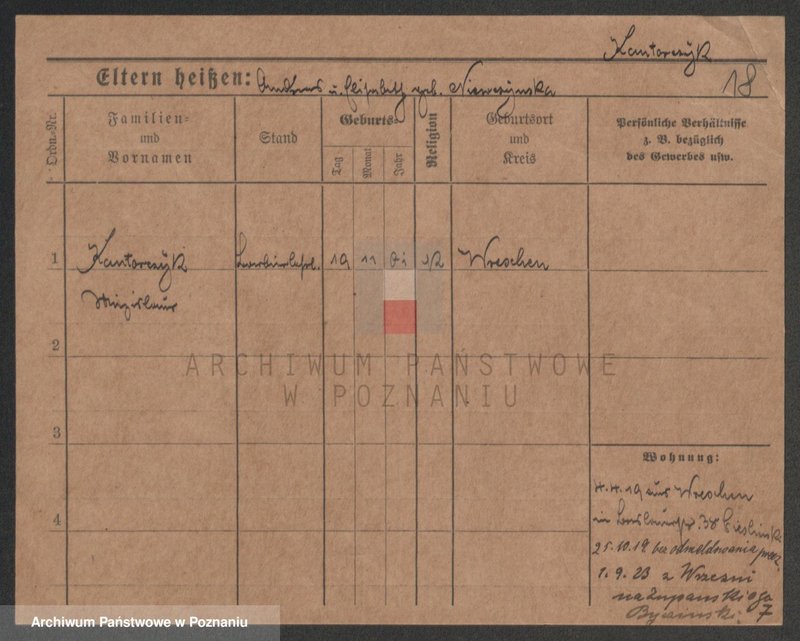 Kantorczyk
Eltern heißen: Andreas u. Elisabeth geb. Niewczynska
18
Ordn.-Nr.
Familien-
und
Vornamen
Stand
Geburts-
Tag
Monat
Jahr
Religion
Geburtsort
und
Kreis
Persönliche Verhältnisse
z. B. bezüglich
des Gewerbes usw.
1
Kantorczyk
19 11 01
Wreschen
2
3
4
ARCHIWUM PAŃSTWOWE
W POZNANIU
Wohnung:
4.4.19 aus Wreschen
in 38
25.10.19 bez odmeldowania
1.9.23 z Wrześni
na Zupanskiego
7
Archiwum Państwowe w Poznaniu